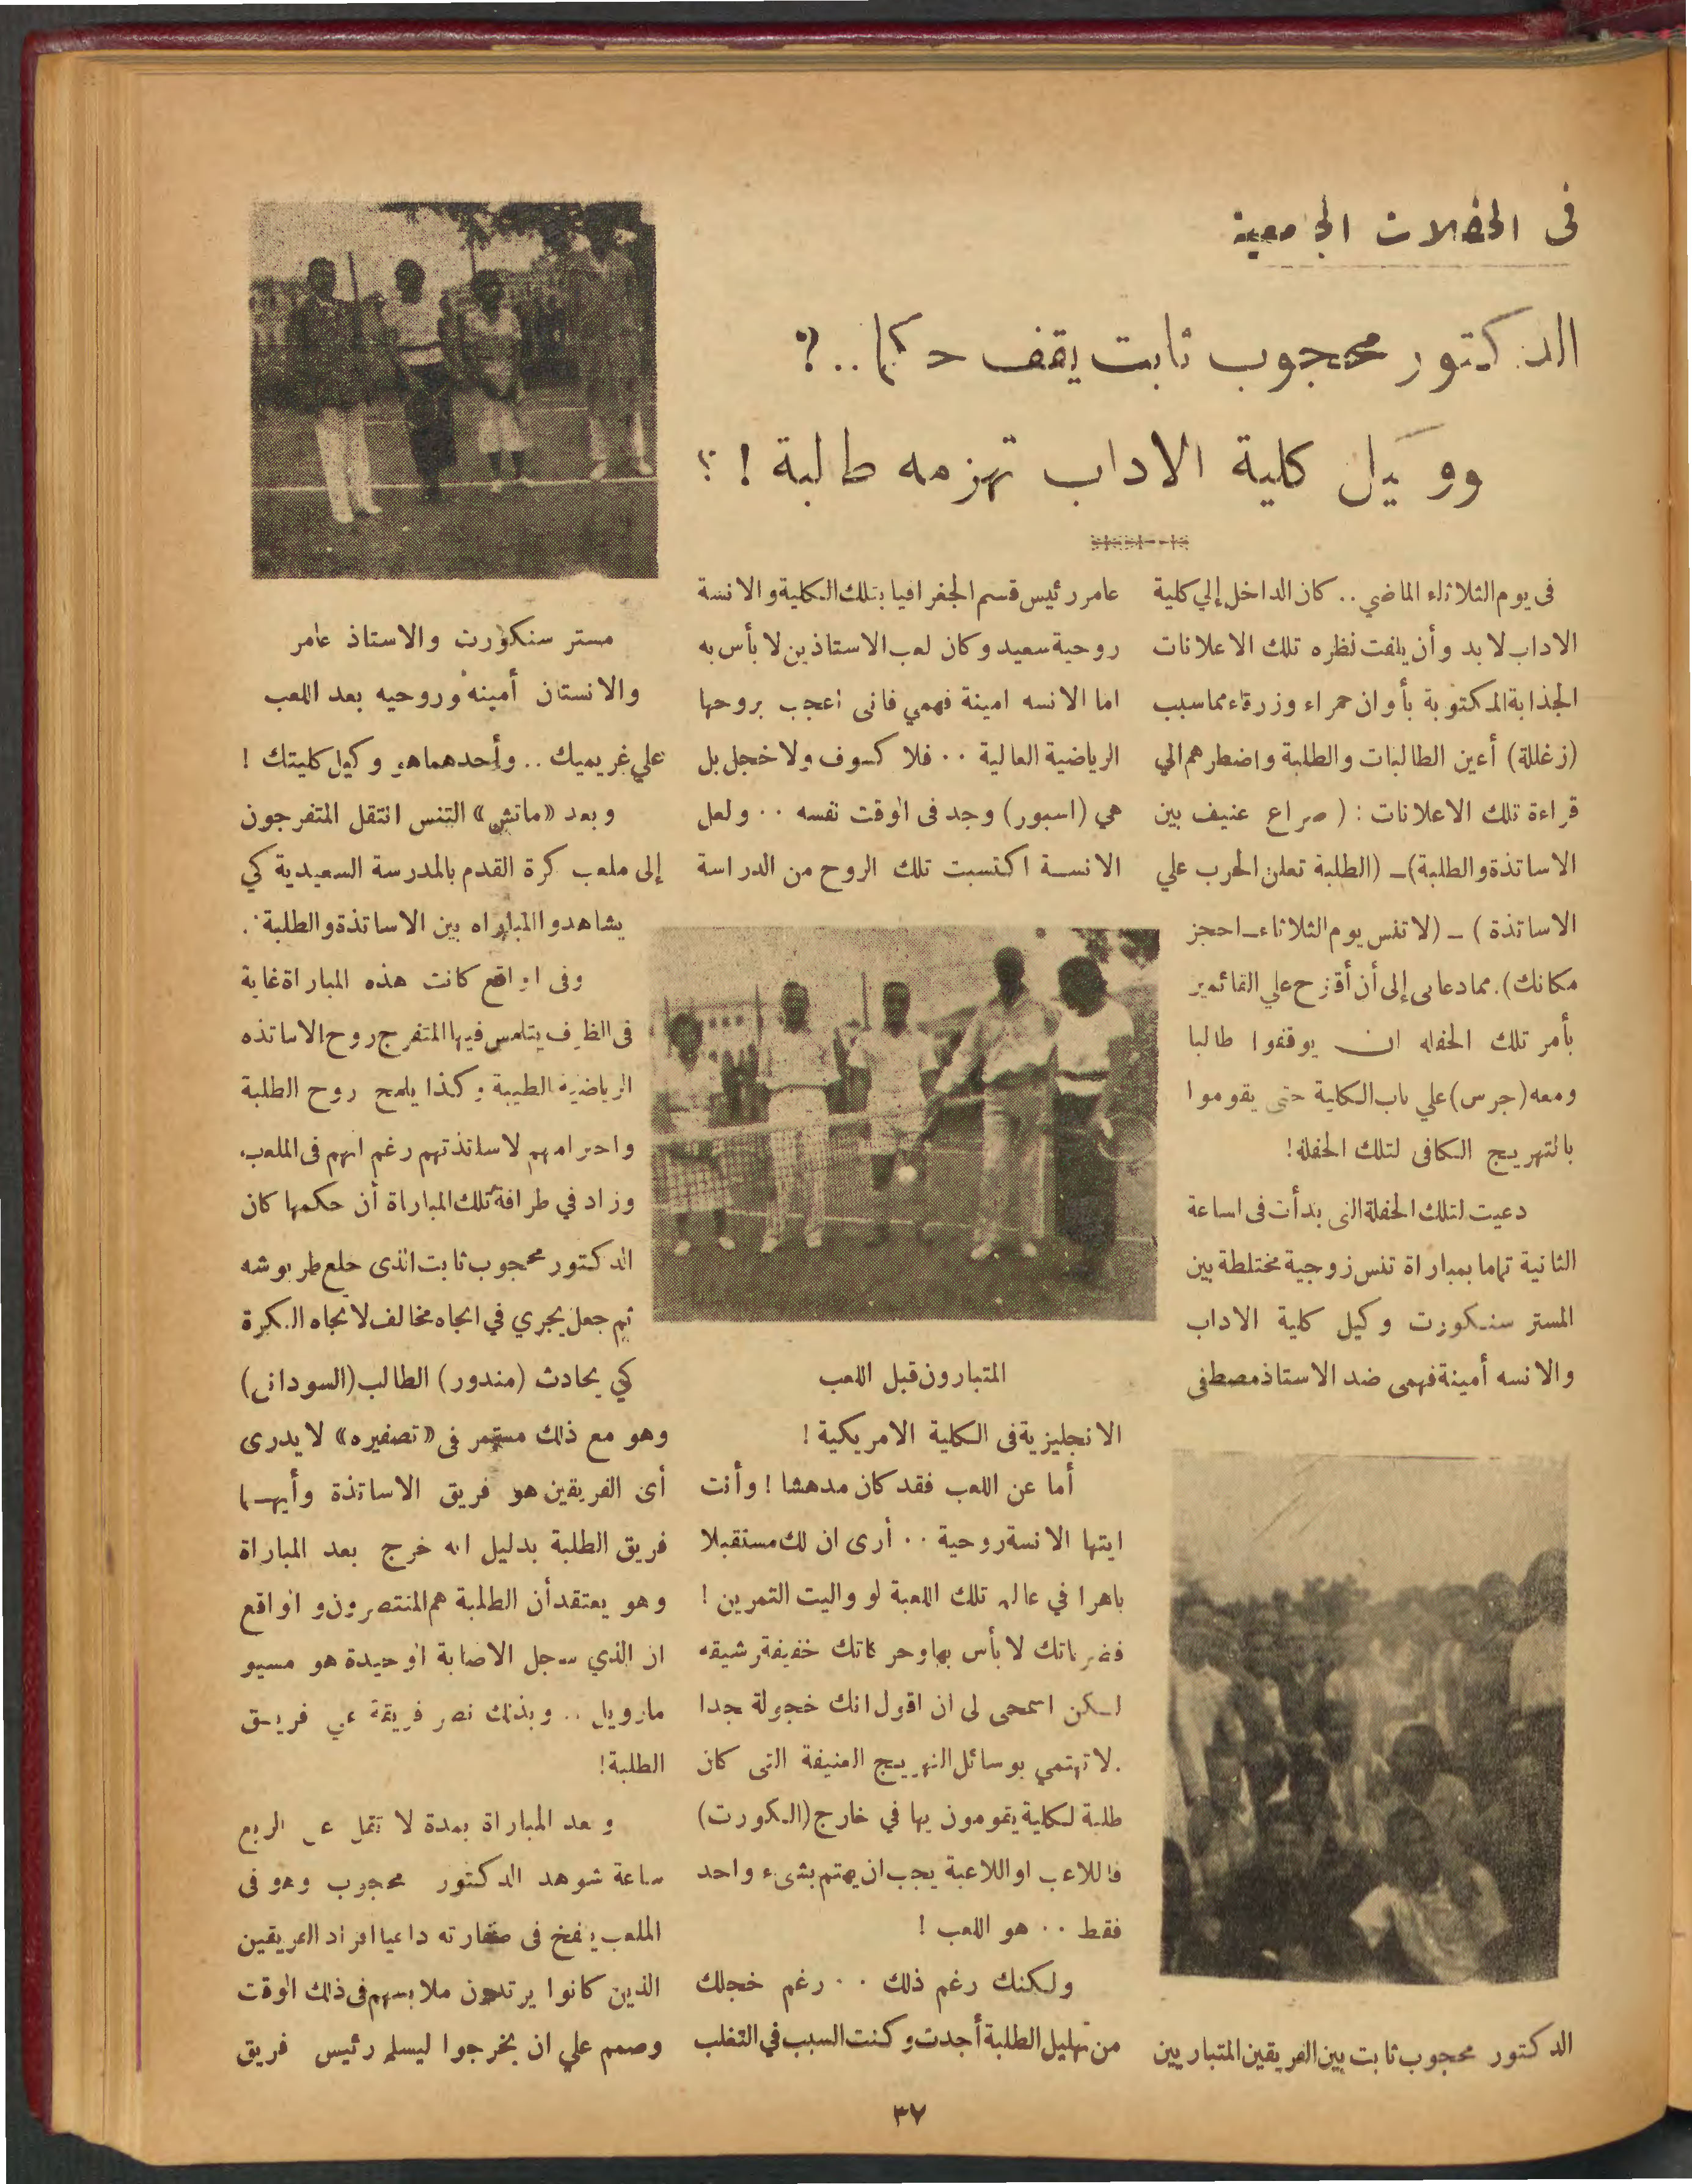 فى الحفلات الجامعية
الدكتور محجوب ثابت يقف حكما..؟
ووكيل كلية الاداب تهزمه طالبة !؟
فى يوم الثلاثاء الماضي .. كان الداخل إلي كلية
الاداب لا بد وأن يلفت نظره تلك الاعلانات
الجذابة المكتوبة بألوان حمراء وزرقاء مما سبب
(زغللة) أعين الطالبات والطلبة واضطرهم الي
قراءة تلك الاعلانات : ( صراع عنيف بين
الاساتذة والطلبة) ـ (الطلبة تعلن الحرب علي
الاساتذة ) ـ (لا تنس يوم الثلاثاء ـ احجز
مكانك). مما دعانى إلى أن أقترح علي القائمين
بأمر تلك الحفله ان يوقفوا طالبا
ومعه (جرس) علي باب الكلية حتى يقوموا
بالتهريج الكافى لتلك الحفلة!
دعيت لتلك الحفلة التى بدأت فى الساعة
الثانية تماما بمباراة تنس زوجية مختلطة بين
المستر سنكورت وكيل كلية الاداب
والانسه أمينة فهمى ضد الاستاذ مصطفى
الدكتور محجوب ثابت بين الفريقين المتباريين
عامر رئيس قسم الجغرافيا بتلك الكلية والانسة
روحية سعيد وكان لعب الاستاذين لا بأس به
اما الانسه امينة فهمي فانى اعجب بروحها
الرياضية العالية .. فلا كسوف ولا خجل بل
هي (اسبور) وجد فى الوقت نفسه .. ولعل
الانسة اكتسبت تلك الروح من الدراسة
المتبارون قبل اللعب
الانجليزية فى الكلية الامريكية !
أما عن اللعب فقد كان مدهشا ! وأنت
ايتها الانسة روحية .. أرى ان لك مستقبلا
باهرا في عالم تلك اللعبة لو واليت التمرين !
فضرباتك لا بأس بها وحركاتك خفيفة رشيقه
لكن اسمحى لى ان اقول انك خجولة جدا
. لا تهتمي بوسائل التهريج العنيفة التى كان
طلبة الكلية يقومون بها في خارج (الكورت)
فاللاعب او اللاعبة يجب ان يهتم بشىء واحد
فقط .. هو اللعب !
ولكنك رغم ذلك .. رغم خجلك
من تهليل الطلبة أجدت وكنت السبب في التغلب
مستر سنكورت والاستاذ عامر
والانستان أمينه وروحيه بعد اللعب
علي غريميك .. وأحدهما هو وكيل كليتك !
وبعد «ماتش» التنس انتقل المتفرجون
إلى ملعب كرة القدم بالمدرسة السعيدية كي
يشاهدوا المباراه بين الاساتذة والطلبة .
وفى الواقع كانت هذه المباراة غاية
فى الظرف يتلمس فيها المتفرج روح الاساتذه
الرياضية الطيبة وكذا يلمح روح الطلبة
واحترامهم لاساتذتهم رغم انهم فى الملعب.
وزاد في طرافة تلك المباراة أن حكمها كان
الدكتور محجوب ثابت الذى خلع طربوشه
ثم جعل يجري في اتجاه مخالف لاتجاه الكرة
كي يحادث (مندور) الطالب (السودانى)
وهو مع ذلك مستمر فى «تصفيره» لا يدرى
أى الفريقين هو فريق الاساتذة وأيهما
فريق الطلبة بدليل انه خرج بعد المباراة
وهو يعتقد أن الطلبة هم المنتصرون والواقع
ان الذي سجل الاصابة الوحيدة هو مسيو
مارويل .. وبذلك نصر فريقة علي فريق
الطلبة!
وبعد المباراة بمدة لا تقل عن الربع
ساعة شوهد الدكتور محجوب وهو فى
الملعب ينفخ فى صفارته داعيا افراد الفريقين
الذين كانوا يرتدون ملابسهم فى ذلك الوقت
وصمم علي ان يخرجوا ليسلم رئيس فريق
٣٧